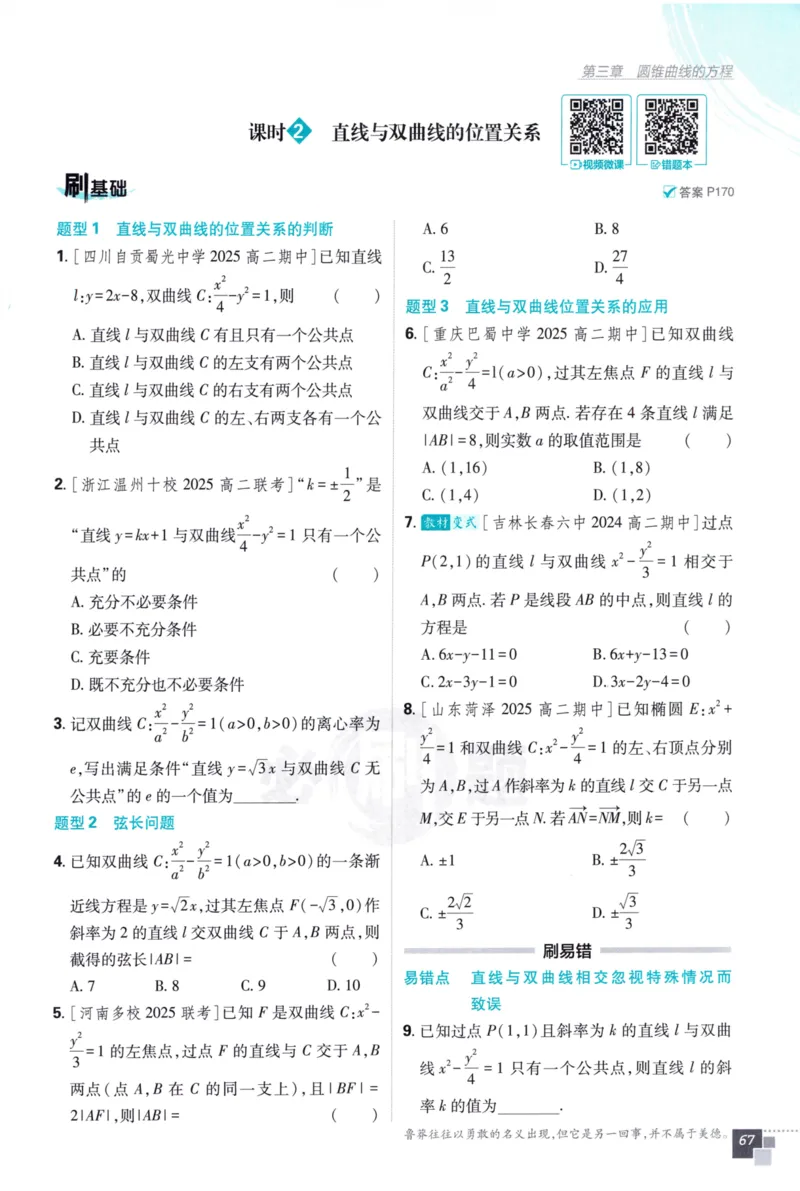 第三章 圆锥曲线的方程
课时2 直线与双曲线的位置关系
视频微课
错题本
刷基础
答案 P170
题型 1 直线与双曲线的位置关系的判断
1. [四川自贡蜀光中学 2025 高二期中]已知直线
l:y=2x-8,双曲线 C:x²/4-y²=1,则 ( )
A. 直线 l 与双曲线 C 有且只有一个公共点
B. 直线 l 与双曲线 C 的左支有两个公共点
C. 直线 l 与双曲线 C 的右支有两个公共点
D. 直线 l 与双曲线 C 的左、右两支各有一个公
共点
2. [浙江温州十校 2025 高二联考]“k=±1/2”是
“直线 y=kx+1 与双曲线x²/4-y²=1 只有一个公
共点”的 ( )
A. 充分不必要条件
B. 必要不充分条件
C. 充要条件
D. 既不充分也不必要条件
3. 记双曲线 C:x²/a²-y²/b²=1(a>0,b>0)的离心率为
e,写出满足条件“直线 y=√3x 与双曲线 C 无
公共点”的 e 的一个值为________.
题型 2 弦长问题
4. 已知双曲线 C:x²/a²-y²/b²=1(a>0,b>0)的一条渐
近线方程是 y=√2x,过其左焦点 F(-√3,0)作
斜率为 2 的直线 l 交双曲线 C 于 A,B 两点,则
截得的弦长|AB|= ( )
A. 7 B. 8 C. 9 D. 10
5. [河南多校 2025 联考]已知 F 是双曲线 C:x²-
y²/3=1 的左焦点,过点 F 的直线与 C 交于 A,B
两点(点 A,B 在 C 的同一支上),且|BF|=
2|AF|,则|AB|= ( )
A. 6 B. 8
C. 13/2 D. 27/4
题型 3 直线与双曲线位置关系的应用
6. [重庆巴蜀中学 2025 高二期中]已知双曲线
C:x²/a²-y²/4=1(a>0),过其左焦点 F 的直线 l 与
双曲线交于 A,B 两点. 若存在 4 条直线 l 满足
|AB|=8,则实数 a 的取值范围是 ( )
A. (1,16) B. (1,8)
C. (1,4) D. (1,2)
7. 教材变式 [吉林长春六中 2024 高二期中]过点
P(2,1)的直线 l 与双曲线 x²-y²/3=1 相交于
A,B 两点. 若 P 是线段 AB 的中点,则直线 l 的
方程是 ( )
A. 6x-y-11=0 B. 6x+y-13=0
C. 2x-3y-1=0 D. 3x-2y-4=0
8. [山东菏泽 2025 高二期中]已知椭圆 E:x²+
y²/4=1 和双曲线 C:x²-y²/4=1 的左、右顶点分别
为 A,B,过 A 作斜率为 k 的直线 l 交 C 于另一点
M,交 E 于另一点 N. 若A⃗N=N⃗M,则 k= ( )
A. ±1 B. ±2√3/3
C. ±2√2/3 D. ±√3/3
刷易错
易错点 直线与双曲线相交忽视特殊情况而
致误
9. 已知过点 P(1,1)且斜率为 k 的直线 l 与双曲
线 x²-y²/4=1 只有一个公共点,则直线 l 的斜
率 k 的值为________.
鲁莽往往以勇敢的名义出现,但它是另一回事,并不属于美德。
67
必刷题